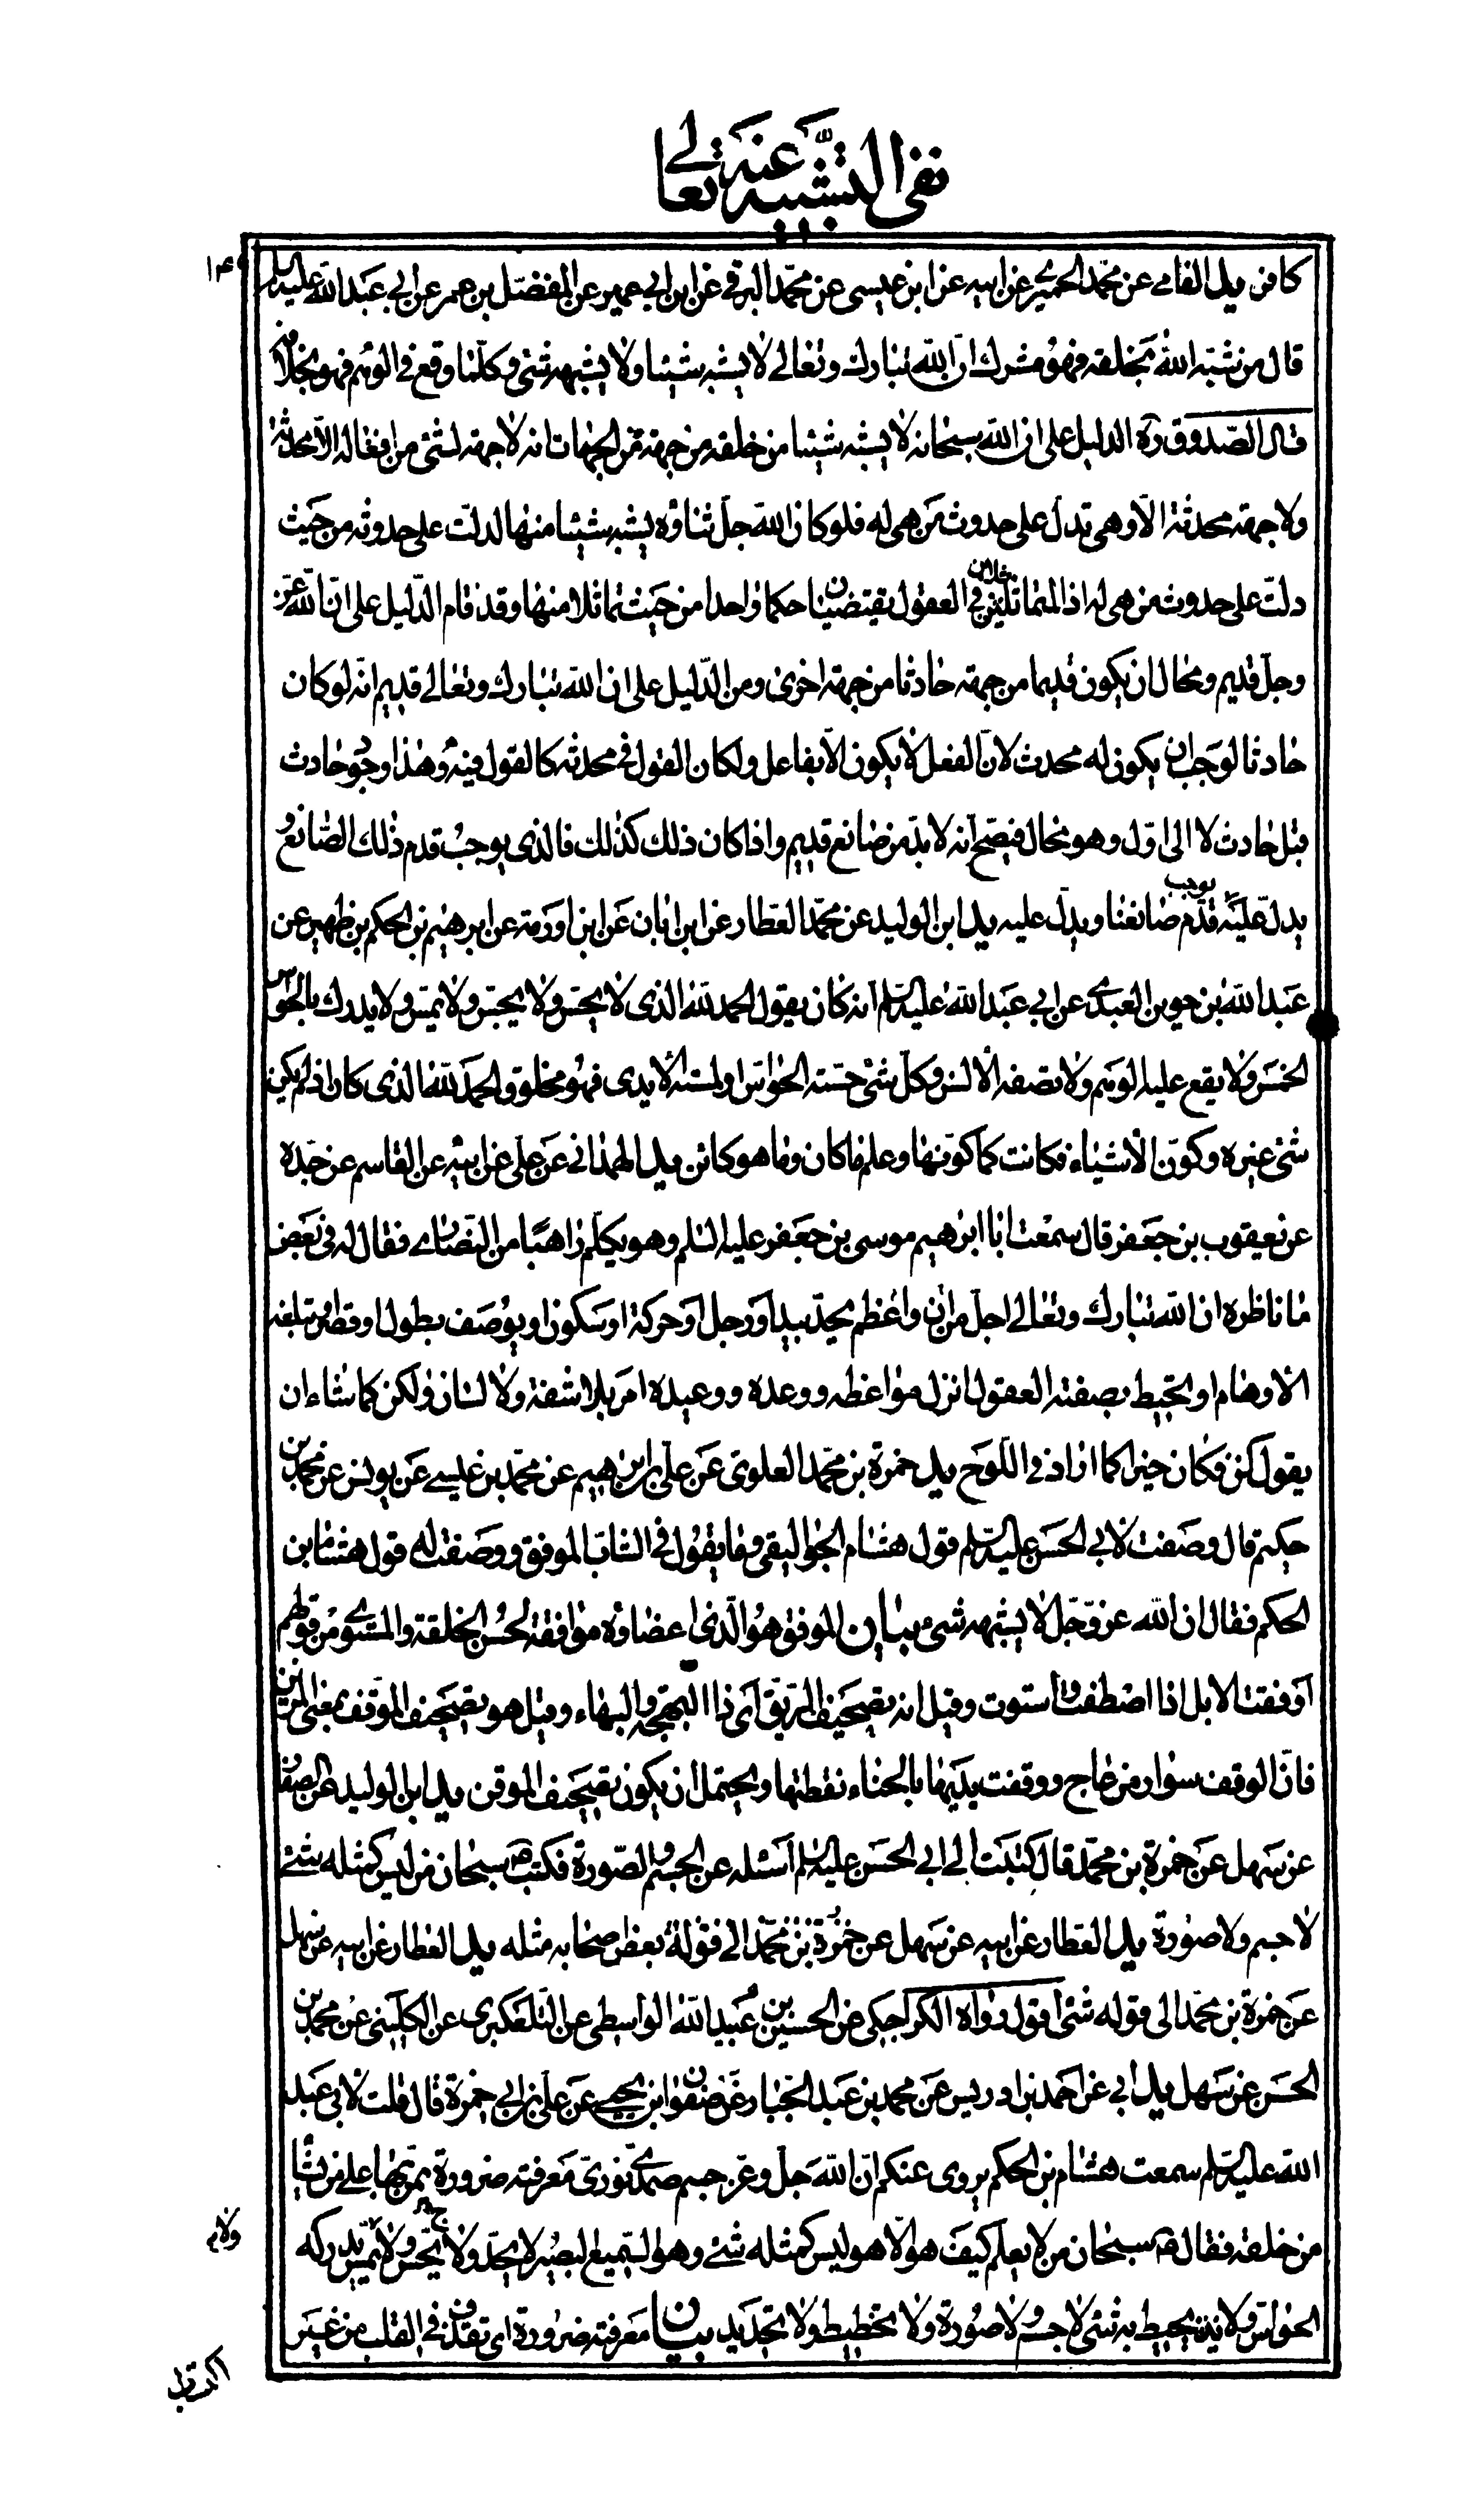 نفى التشبيه عنه تعالى
كافر يد الفامي عن محمد الحميري عن ابيه عن ابن عيسى عن محمد البرقي عن ابن ابي عمير عن المفضل بن عمر عن ابي عبد الله عليه السلم
قال من شبه الله بخلقه فهو مشرك ان الله تبارك وتعالى لا يشبه شيئا ولا يشبهه شئ وكلما وقع في الوهم فهو بخلافه
قال الصدوق ره الدليل على ان الله سبحانه لا يشبه شيئا من خلقه من جهة من الجهات انه لا جهة لشئ من افعاله الا محدثة
ولا جهة محدثة الا وهي تدل على حدوث من هي له فلو كان الله جل ثناؤه يشبه شيئا منها لدلت على حدوثه من حيث
دلت على حدوث من هي له اذ المتماثلين في العقول يقتضيان حكما واحدا من حيث تماثلا منها وقد قام الدليل على ان الله عز
وجل قديم ومحال ان يكون قديما من جهة حادثا من جهة اخرى ومن الدليل على ان الله تبارك وتعالى قديم انه لو كان
حادثا لوجب ان يكون له محدث لان الفعل لا يكون الا بفاعل ولكان القول في محدثه كالقول فيه وفي هذا وجود حادث
قبل حادث لا الى اول وهو محال فيصح انه لا بد من صانع قديم واذا كان ذلك كذلك فالذي يوجب قدم ذلك الصانع و
يدل عليه يوجب قدم صانعنا ويدل عليه يد ابن الوليد عن محمد العطار عن ابن ابان عن ابن اورمة عن ابرهيم بن الحكم بن ظهير عن
عبد الله بن جوين العبدي عن ابي عبد الله عليه السلم انه كان يقول الحمد لله الذي لا يحس ولا يجس ولا يمس ولا يدرك بالحواس
الخمس ولا يقع عليه الوهم ولا تصفه الالسن وكل شئ حسته الحواس او لمسته الايدي فهو مخلوق والحمد لله الذي كان اذ لم يكن
شئ غيره وكون الاشياء فكانت كما كونها وعلم ما كان وما هو كائن يد الهمداني عن علي عن ابيه عن القاسم عن جده
عن يعقوب بن جعفر قال سمعت ابا ابرهيم موسى بن جعفر عليه السلم وهو يكلم راهبا من النصارى فقال له في بعض
ما ناظره ان الله تبارك وتعالى اجل من ان واعظم يحد بيد او رجل او حركة او سكون او يوصف بطول او قصر او تبلغه
الاوهام او تحيط بصفته العقول انزل مواعظه ووعده ووعيده امر بلا شفة ولا لسان ولكن كما شاء ان
يقول كن فكان خبرا كما اراد في اللوح يد حمزة بن محمد العلوي عن علي بن ابراهيم عن محمد بن عيسى عن يونس عن محمد بن
حكيم قال وصفت لابي الحسن عليه السلم قول هشام الجواليقي وما يقول في الشاب الموفق ووصفت له قول هشام بن
الحكم فقال ان الله عز وجل لا يشبهه شئ بيان الموفق هو الذي اعضاؤه موافقة لحسن الخلقة والمستوي من قولهم
اوفقت الابل اذا اصطفت واستوت وقيل انه تصحيف الريق اي ذا البهجة والبهاء وقيل هو تصحيف الموقف بمعنى المزين
فان الوقف سوار من عاج ووقفت يديها بالحناء نقطتها ويحتمل ان يكون تصحيف الموقن يد ابن الوليد عن الصفار
عن سهل عن حمزة بن محمد قال كتبت الى ابي الحسن عليه السلم اسئله عن الجسم والصورة فكتب ع سبحان من ليس كمثله شئ
لا جسم ولا صورة يد العطار عن ابيه عن سهل عن حمزة بن محمد الى قوله بعض اصحابه مثله يد العطار عن ابيه عن سهل
عن حمزة بن محمد الى قوله شئ اقول ورواه الكراجكي عن الحسين بن عبيد الله الواسطي عن التلعكبري عن الكليني عن محمد بن
الحسن عن سهل يد ابي عن احمد بن ادريس عن محمد بن عبد الجبار عن صفوان ابن يحيى عن علي بن ابي حمزة قال قلت لابي عبد
الله عليه السلم سمعت هشام بن الحكم يروي عنكم ان الله جل وعز جسم صمدي نوري معرفته ضرورة يمن بها على من يشاء
من خلقه فقال ع سبحان من لا يعلم كيف هو الا هو ليس كمثله شئ وهو السميع البصير لا يحد ولا يحس ولا يمس ولا يدركه
الحواس ولا يحيط به شئ لا جسم ولا صورة ولا تخطيط ولا تحديد بيان معرفته ضرورة اي تقذف في القلب من غير